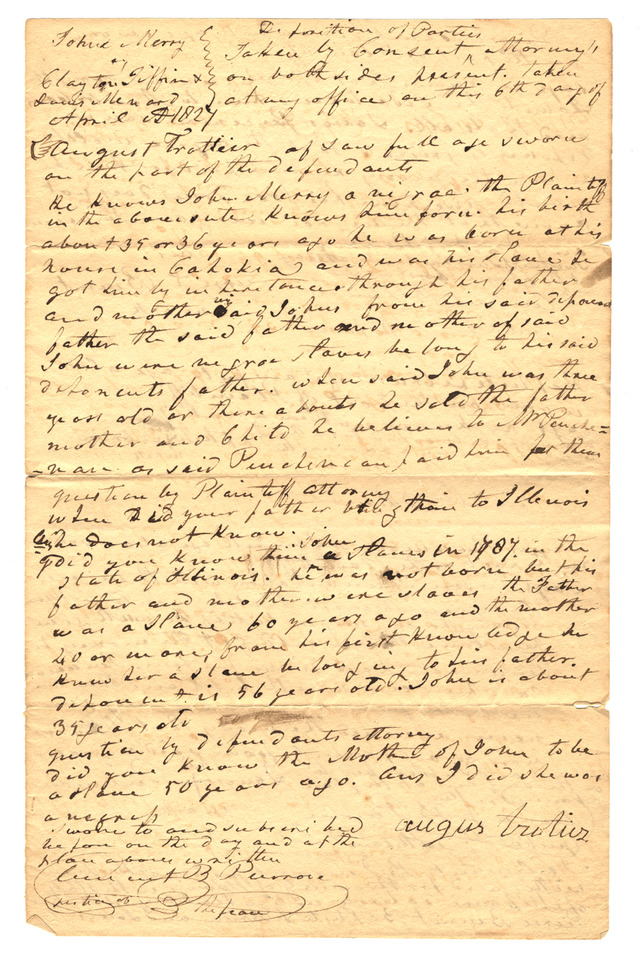 Deposition of Parties
John Merry
Taken by Consent attorney's
Clayton Tiffin &
on both sides present. taken
Louis Menard
at my office on this 6th day of
April AD 1827
August Trottier of law full age sworn
on the part of the defendants
He knows John Merry a negroe. the Plaintiff
in the above sute knows him form his birth
about 35 or 36 years ago he was born at his
house in Cahokia and was his slave he
got him by in heretance through his father
and mother said John from his said deponent
father the said father and mother of said
John were negroe slaves be long to his said
deponents father. when said John was three
years old or there abouts he sold the father
mother and Child he believes to Mr Penche=
=nau as said Penchenau paid him for them
question by Plaintiff attorney
when Did your father bring thain to Illinois
he does not know.
did you know John a slave in 1787 in the
State of Illinois. he was not born but his
father and mother were slaves the Father
was a slave 60 years ago and the mother
40 or more, from his first knowledge he
knew her a slave be long ing to his father.
deponent is 56 years old. John is about
35 years old
question by defendants attorney
did you know the Mother of John to be
a slave 50 years ago. ans I did she was
a negress
Sworn to and subscribed
before on the day and at the
place above written
augus trotier
Clement B
Justice of the peace